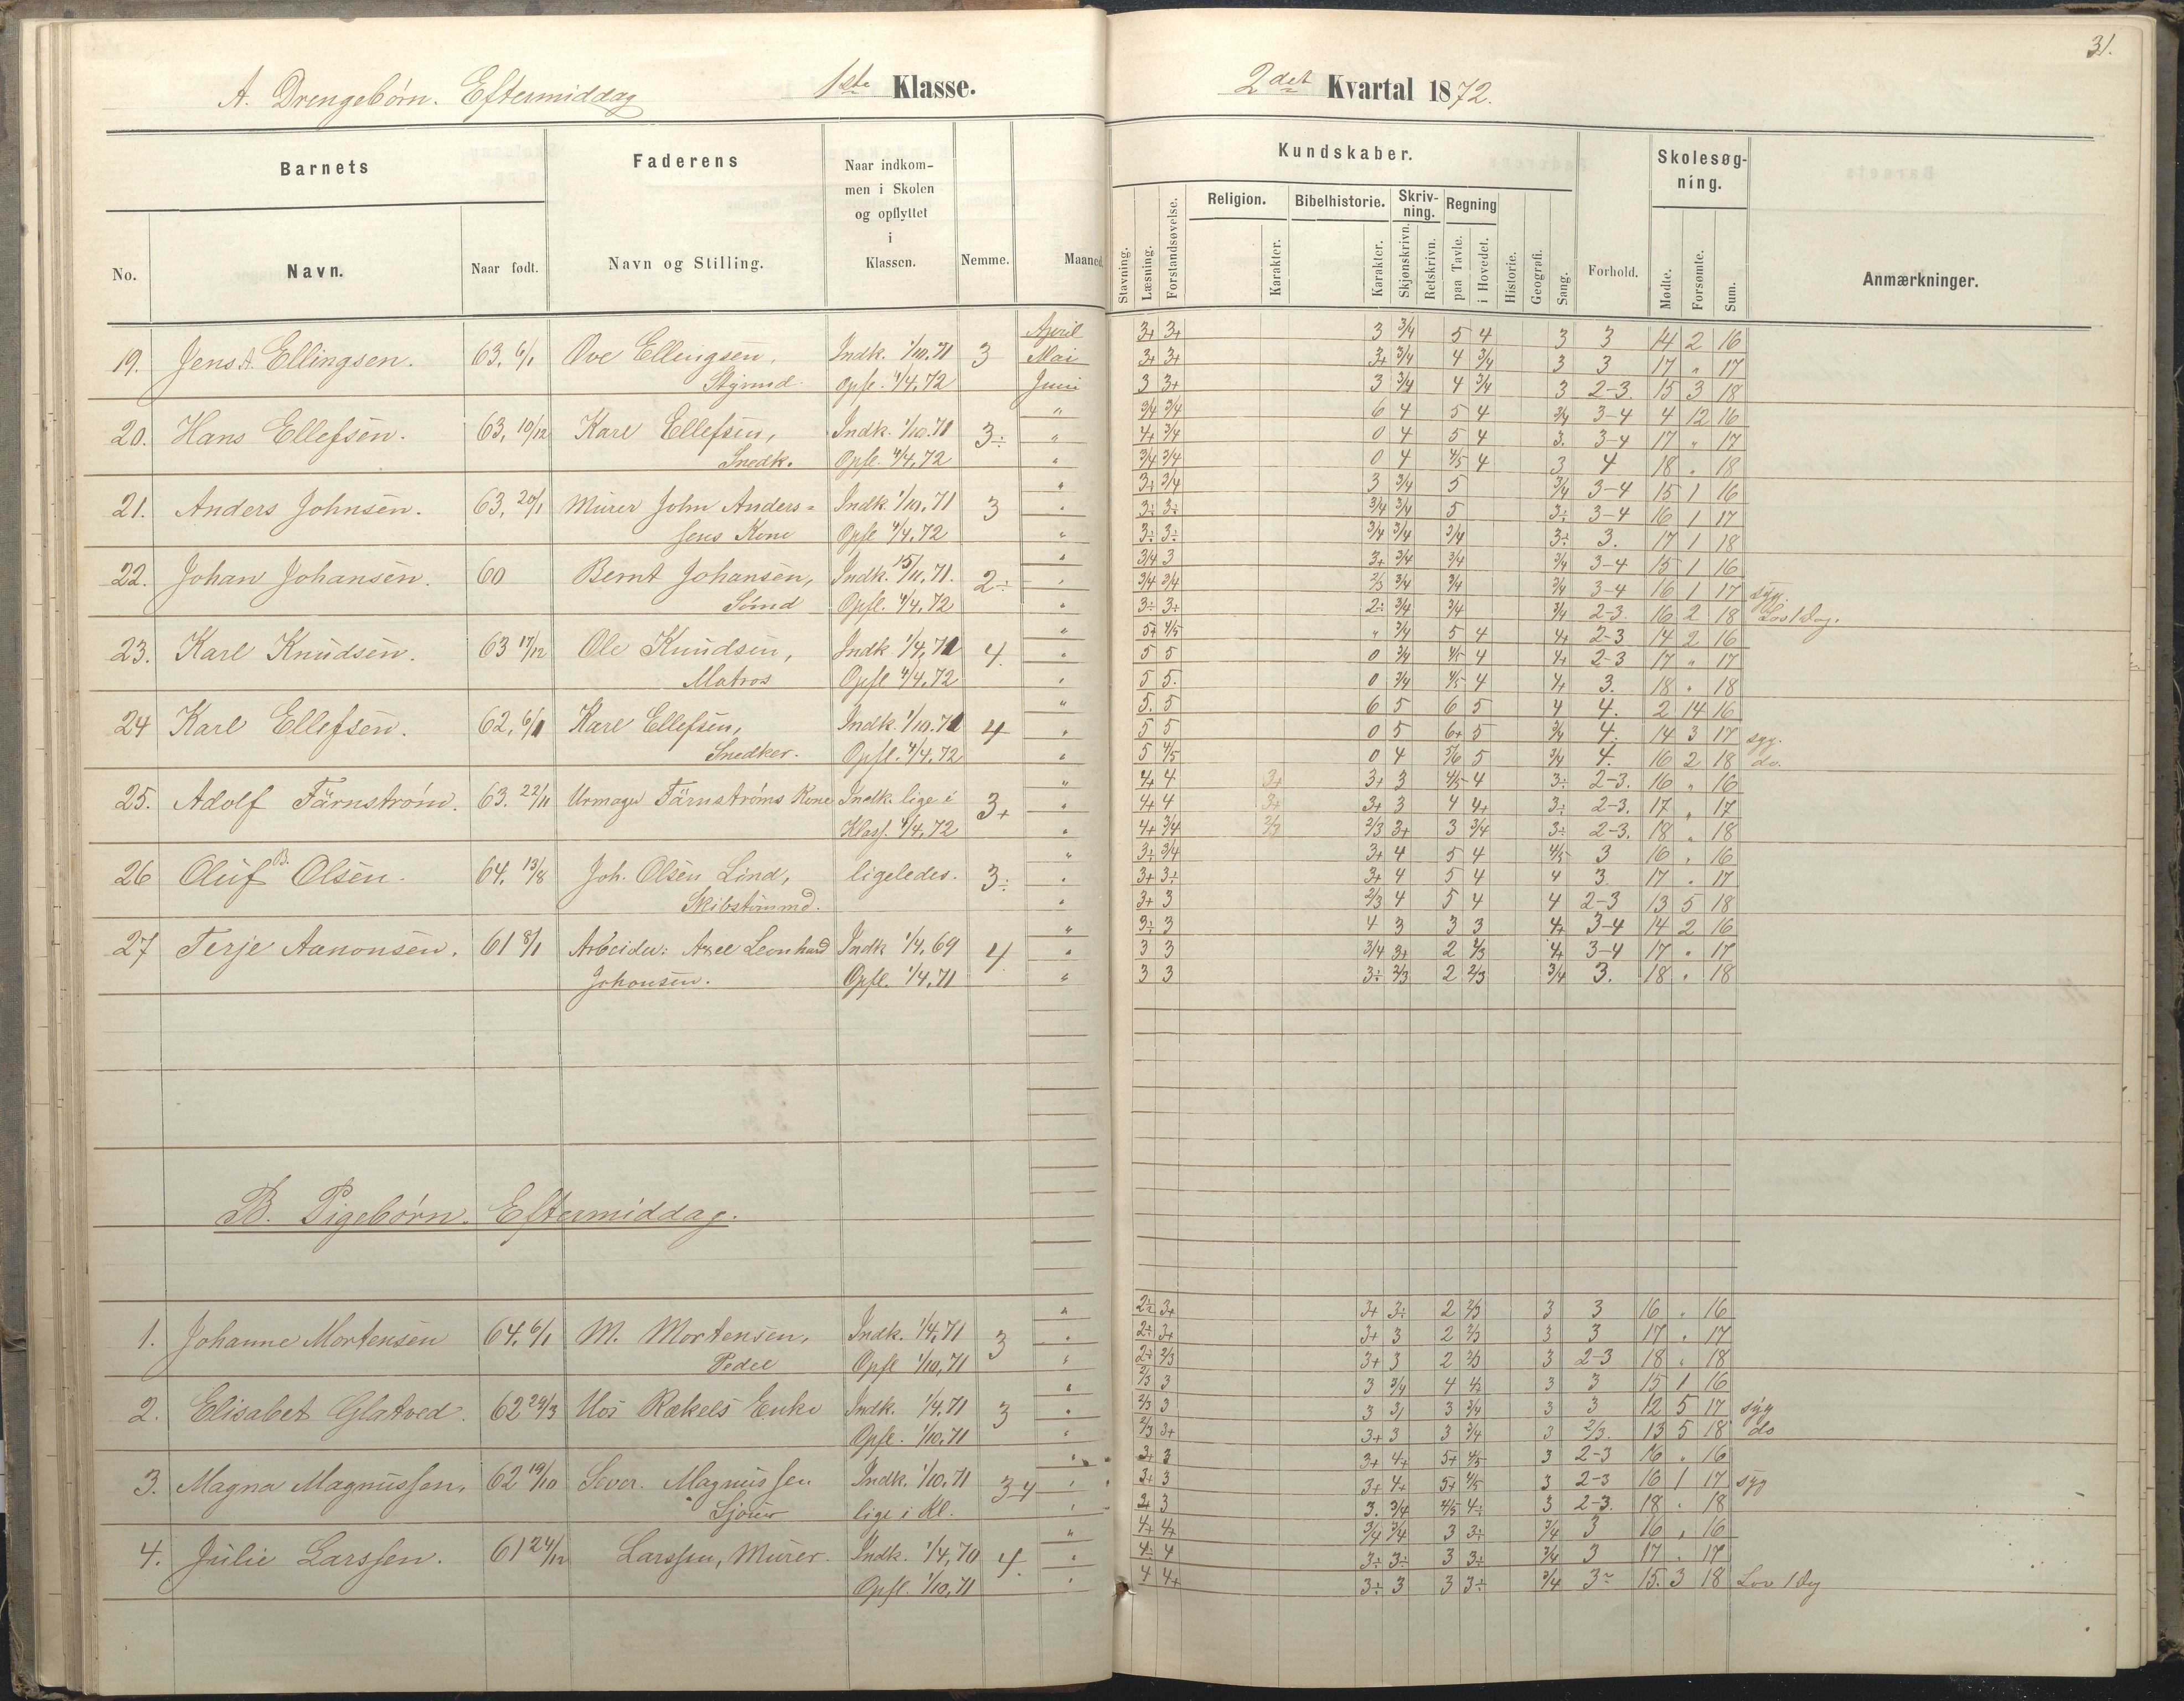 31.
A. Drengebørn. Eftermiddag 1ste Klasse. 2det Kvartal 1872.
Barnets Faderens Naar indkommen i Skolen og opflyttet i Klassen. Nemme. Maaned. Kundskaber. Forhold. Skolesøgning. Anmærkninger.
No. Navn. Naar født. Navn og Stilling. Stavning. Læsning. Forstandsøvelse. Religion. Karakter. Bibelhistorie. Karakter. Skrivning. Skjønskrivn. Retskrivn. Regning paa Tavle. i Hovedet. Historie. Geografi. Sang. Møde. Forsømte. Sum.
April 3+ 3+ 3 3/4 5 4 3 3 14 2 16
19. Jens A. Ellingsen. 63, 6/1 Ove Ellingsen, Indk. 1/10.71 3 Mai 3+ 3+ 3+ 3/4 4 3/4 3 3 17 " 17
Styrmd. Opfl. 4/4.72 Juni 3 3+ 3 3/4 4 3/4 3 2-3. 15 3 18
" 3/4 3/4 6 4 5 4 3/4 3-4 4 12 16
20. Hans Ellefsen. 63, 19/12 Karl Ellefsen, Indk. 1/10.71 3÷ " 4+ 3/4 0 4 5 4 3. 3-4 17 " 17
Snedk. Opfl. 4/4.72 " 3/4 3/4 0 4 4/5 4 3 4 18 " 18
" 3+ 3/4 3 3/4 5 3/4 3-4 15 1 16
21. Anders Johnsen. 63, 20/1 Murer John Anders= Indk 1/10.71 3 " 3÷ 3÷ 3/4 3/4 5 3÷ 3-4 16 1 17
sens Kone Opfl 4/4.72 " 3÷ 3÷ 3/4 3/4 3/4 3÷ 3. 17 1 18
" 3/4 3 3+ 3/4 3/4 3/4 3-4 15 1 16
22. Johan Johansen. 60 Bernt Johansen, Indk. 15/11.71. 2÷ " 3/4 3/4 2/3 3/4 3/4 3/4 3-4 16 1 17 syg.
Sømd Opfl. 4/4.72 " 3÷ 3÷ 2÷ 3/4 3/4 3/4 2-3. 16 2 18 Lov 1 Dag.
" 5+ 4/5 " 3/4 5 4 4+ 2-3 14 2 16
23. Karl Knudsen. 63 17/12 Ole Knudsen, Indk 1/4.71 4. " 5 5 0 3/4 4/5 4 4+ 2-3 17 " 17
Matros Opfl 4/4.72 " 5 5. 0 3/4 4/5 4 4+ 3. 18 " 18
" 5. 5 6 5 6 5 4 4. 2 14 16
24 Karl Ellefsen. 62, 6/1 Karl Ellefsen, Indk. 1/10.71 4 " 5 5 0 5 6+ 5 3/4 4. 14 3 17 syg.
Snedker. Opfl. 4/4.72 " 5 4/5 0 4 5/6 5 3/4 4. 16 2 18 do.
" 4+ 4 3+ 3+ 3 4/5 4 3÷ 2-3. 16 " 16
25. Adolf Färnstrøm. 63. 22/11 Urmager Färnstrøms Kone Indk. lige i 3+ " 4+ 4 3+ 3+ 3 4 4+ 3÷ 2-3. 17 " 17
Klass. 4/4.72 " 4+ 3/4 2/3 2/3 3+ 3 3/4 3÷ 2-3. 18 " 18
" 3÷ 3/4 3+ 4 5 4 4/5 3 16 " 16
26 Oluf B. Olsen. 64. 13/8 Joh. Olsen Lind, ligeledes. 3÷ " 3+ 3÷ 3+ 4 5 4 4 3. 17 " 17
Skibstømmd. " 3+ 3 2/3 4 5 4 4 2-3 13 5 18
" 3÷ 3 4 3 3 3 4+ 3-4 14 2 16
27 Terje Aanonsen. 61 8/1 Arbeider: Axel Leonhard Indk 1/4.69 4. " 3 3 3/4 3+ 2 2/3 4+ 3-4 17 " 17
Johonsen. Opfl. 1/4.71 " 3 3 3÷ 2/3 2 2/3 3/4 3. 18 " 18
B. Pigebørn. Eftermiddag.
" 2÷ 3+ 3+ 3÷ 2 2/3 3 3 16 " 16
1. Johanne Mortensen 64. 6/1 M. Mortensen, Indk. 1/4.71 3 " 2÷ 3+ 3+ 3 2 2/3 3 3 17 " 17
Pedel Opfl 1/10.71 " 2÷ 2/3 3+ 3 2 2/3 3 2-3 18 " 18
" 2/3 3 3 3/4 4 4+ 3 3 15 1 16
2. Elisabet Glatved. 62 29/3 Hos Rækels Enke Indk. 1/4.71 3 " 2/3 3 3 3 3/4 3 3 12 5 17 syg
Opfl. 1/10.71 " 2/3 3+ 3+ 3 3 3/4 3 2/3. 13 5 18 do
" 3+ 3 3+ 4+ 5+ 4/5 3 2-3 16 " 16
3. Magna Magnussen. 62 19/10 Sever. Magnussen Indk. 1/10.71 3-4 " 3+ 3 3+ 4+ 5+ 4/5 3 2-3 16 1 17 syg
lige i Kl. 3 3. 3/4 4/5 4÷ 3 2-3. 18 " 18
" 4+ 4+ 3/4 3/4 3 3÷ 3/4 3 16 " 16
4. Julie Larssen. 61 24/12 Larssen, Murer. Indk. 1/4.70 4. " 4÷ 4 3÷ 3÷ 3 3÷ 3/4 3 17 " 17
Opfl. 1/10.71 " 4 4+ 3÷ 3 3 3÷ 3/4 15. 3 18 Lov 1 Dag